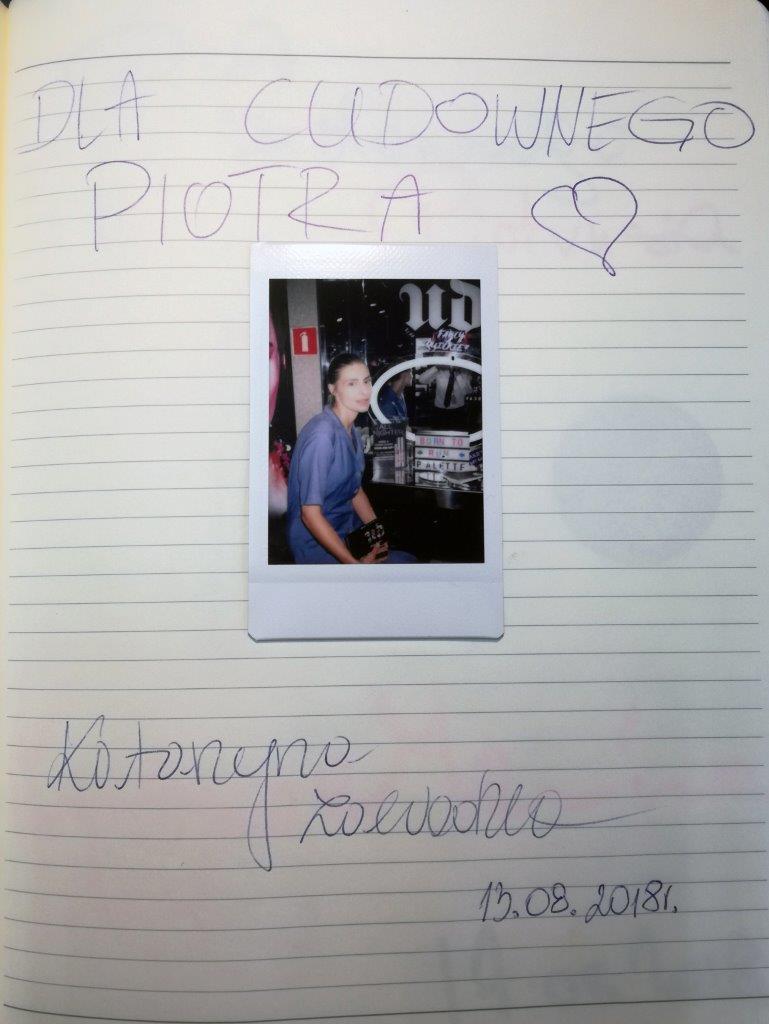 DLA CUDOWNEGO
PIOTRA
ud
BORN TO
RUN
PALETTE
Katarzyna
Zawadzka
13.08.2018r.